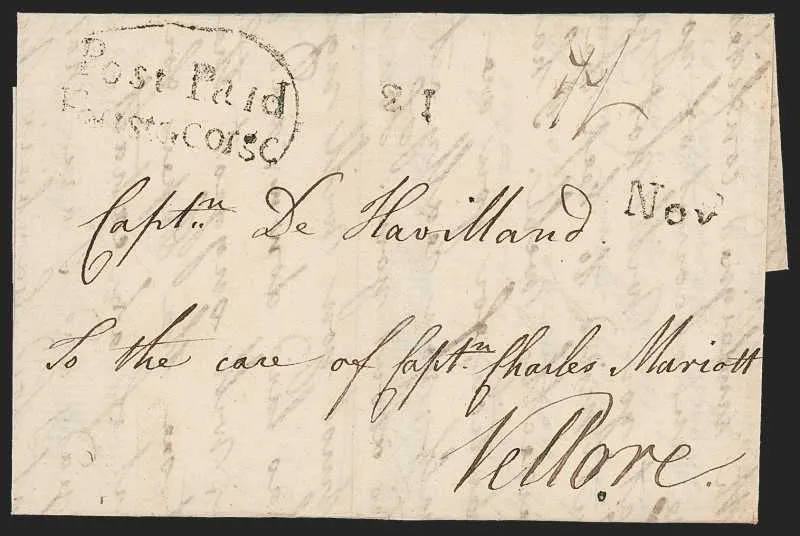 Post Paid
Fort St. George
Nov
Captn. De Havilland.
To the care of Captn. Charles Mariott
Vellore.